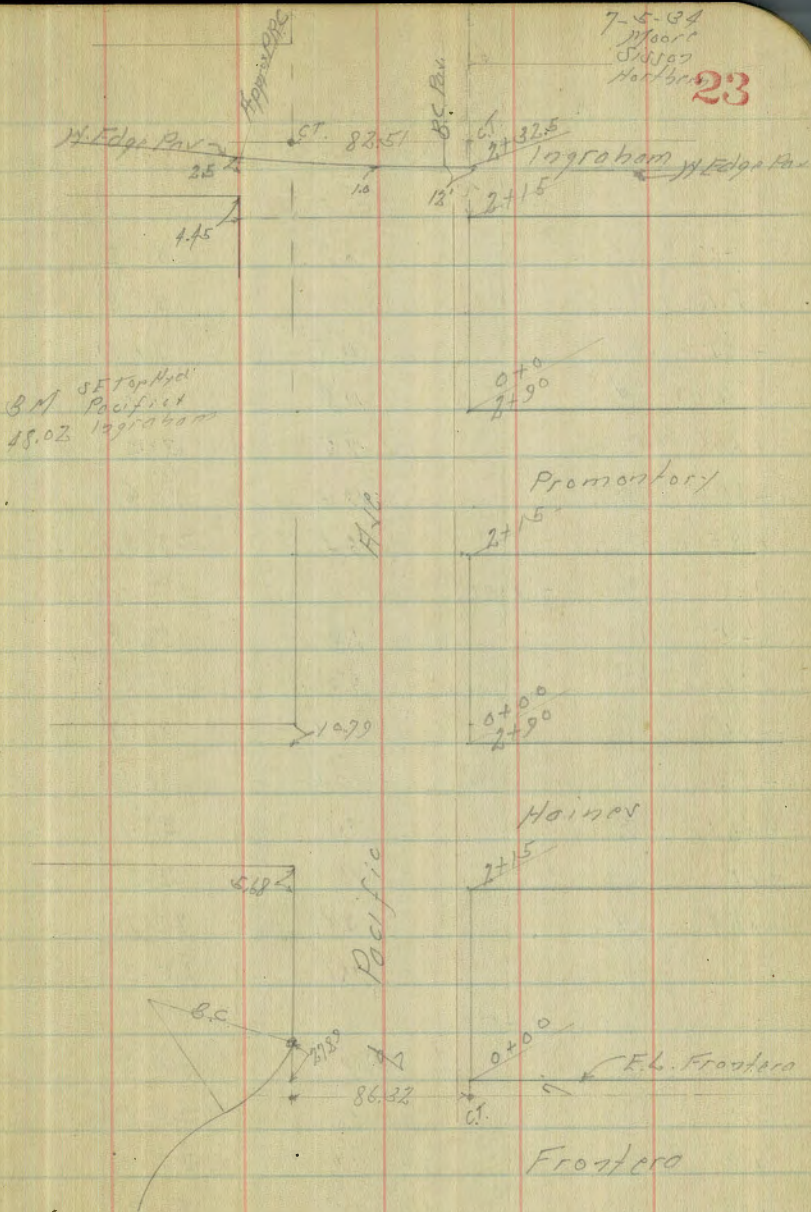 7-5-34
Moore
Sisson
Northern
23
Approx P.R.C.
B.C. Pav.
W. Edge Pav
C.T.
82.51
C.T.
2+32.5
Ingraham
W Edge Pav
2.5
1.0
12'
2+15
4.45
0+0
2+90
BM
48.02
SE Top Hyd
Pacific &
Ingraham
Promontory
Ave.
2+15
10.79
0+00
2+90
Haines
2+15
5.68
Pacific
B.C.
27.89
0+00
E.L. Frontera
86.32
C.T.
Frontera